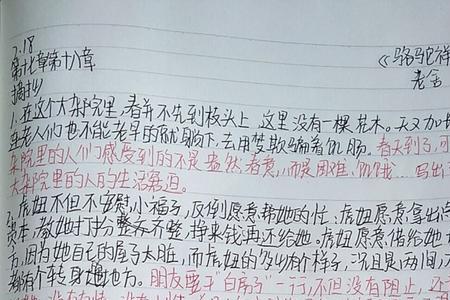 7.18
第十七章第十八章 《骆驼祥
摘抄 老舍
1.在这个大杂院里,春并不先到枝头上,这里没有一棵花木。天又加
里老人们也不能老早的就躺下,去用梦欺骗着饥肠。春天到了,可
杂院里的人们感受到的不是盎然春意,而是困难、饥饿 写出
大杂院里的人的生活窘迫。
2.虎妞不但不安慰小福子,反倒愿意帮她的忙:虎妞愿意拿出点
资本,教她打扮整齐齐整,挣来钱再还给她。虎妞愿意借给她
方,因为她自己的屋子太脏,而虎妞的多少有个样子,况且是两间,大
都有个转身的地方。朋友要干"白房子"一行,不但没有阻止,还